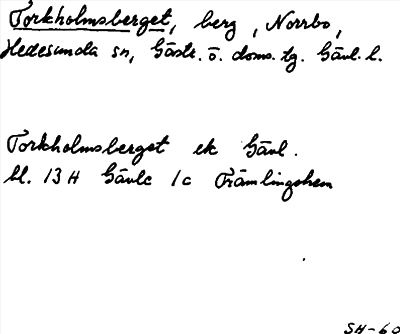 Torkholmsberget, berg, Norrbo,
Hedesunda sn, Gästr. ö. doms. tg. Gävl. l.
Torkholmsberget ek Gävl.
bl. 13 H Gävle 1c Främlingshem
SH-60